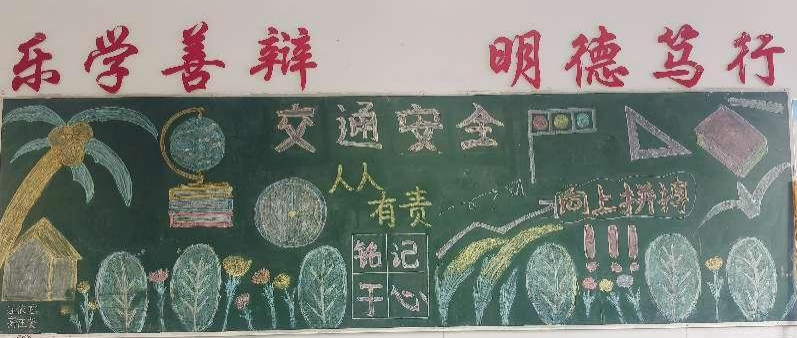 乐学善辩
明德笃行
交通安全
人人
有责
向上拼搏
!!!
铭记
于心